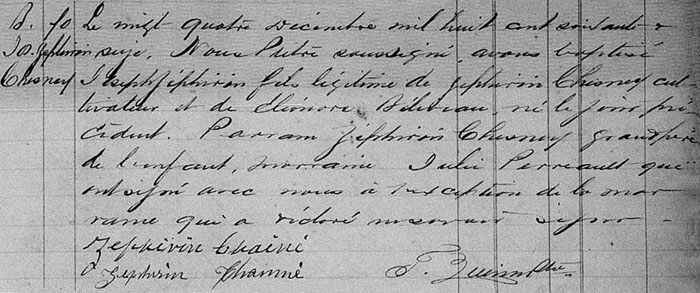 B. 70 Le vingt quatre Décembre mil huit cent soixante &
Js. Zéphirin seize, Nous Prêtre soussigné, avons baptisé
Chesney Joseph Zéphirin fils légitime de Zéphirin Chesney cul
tivateur et de Eléonore Biliveau, né le jour pré
cédent. Parrain Zéphirin Chesney grandpère
de l'enfant, marraine Julie Perreault qui
ont signé avec nous à l'exception de la mar
raine qui a déclaré ne savoir signer
Zephirin Chainé
Zephirin Chainné P. Quinn Ptre